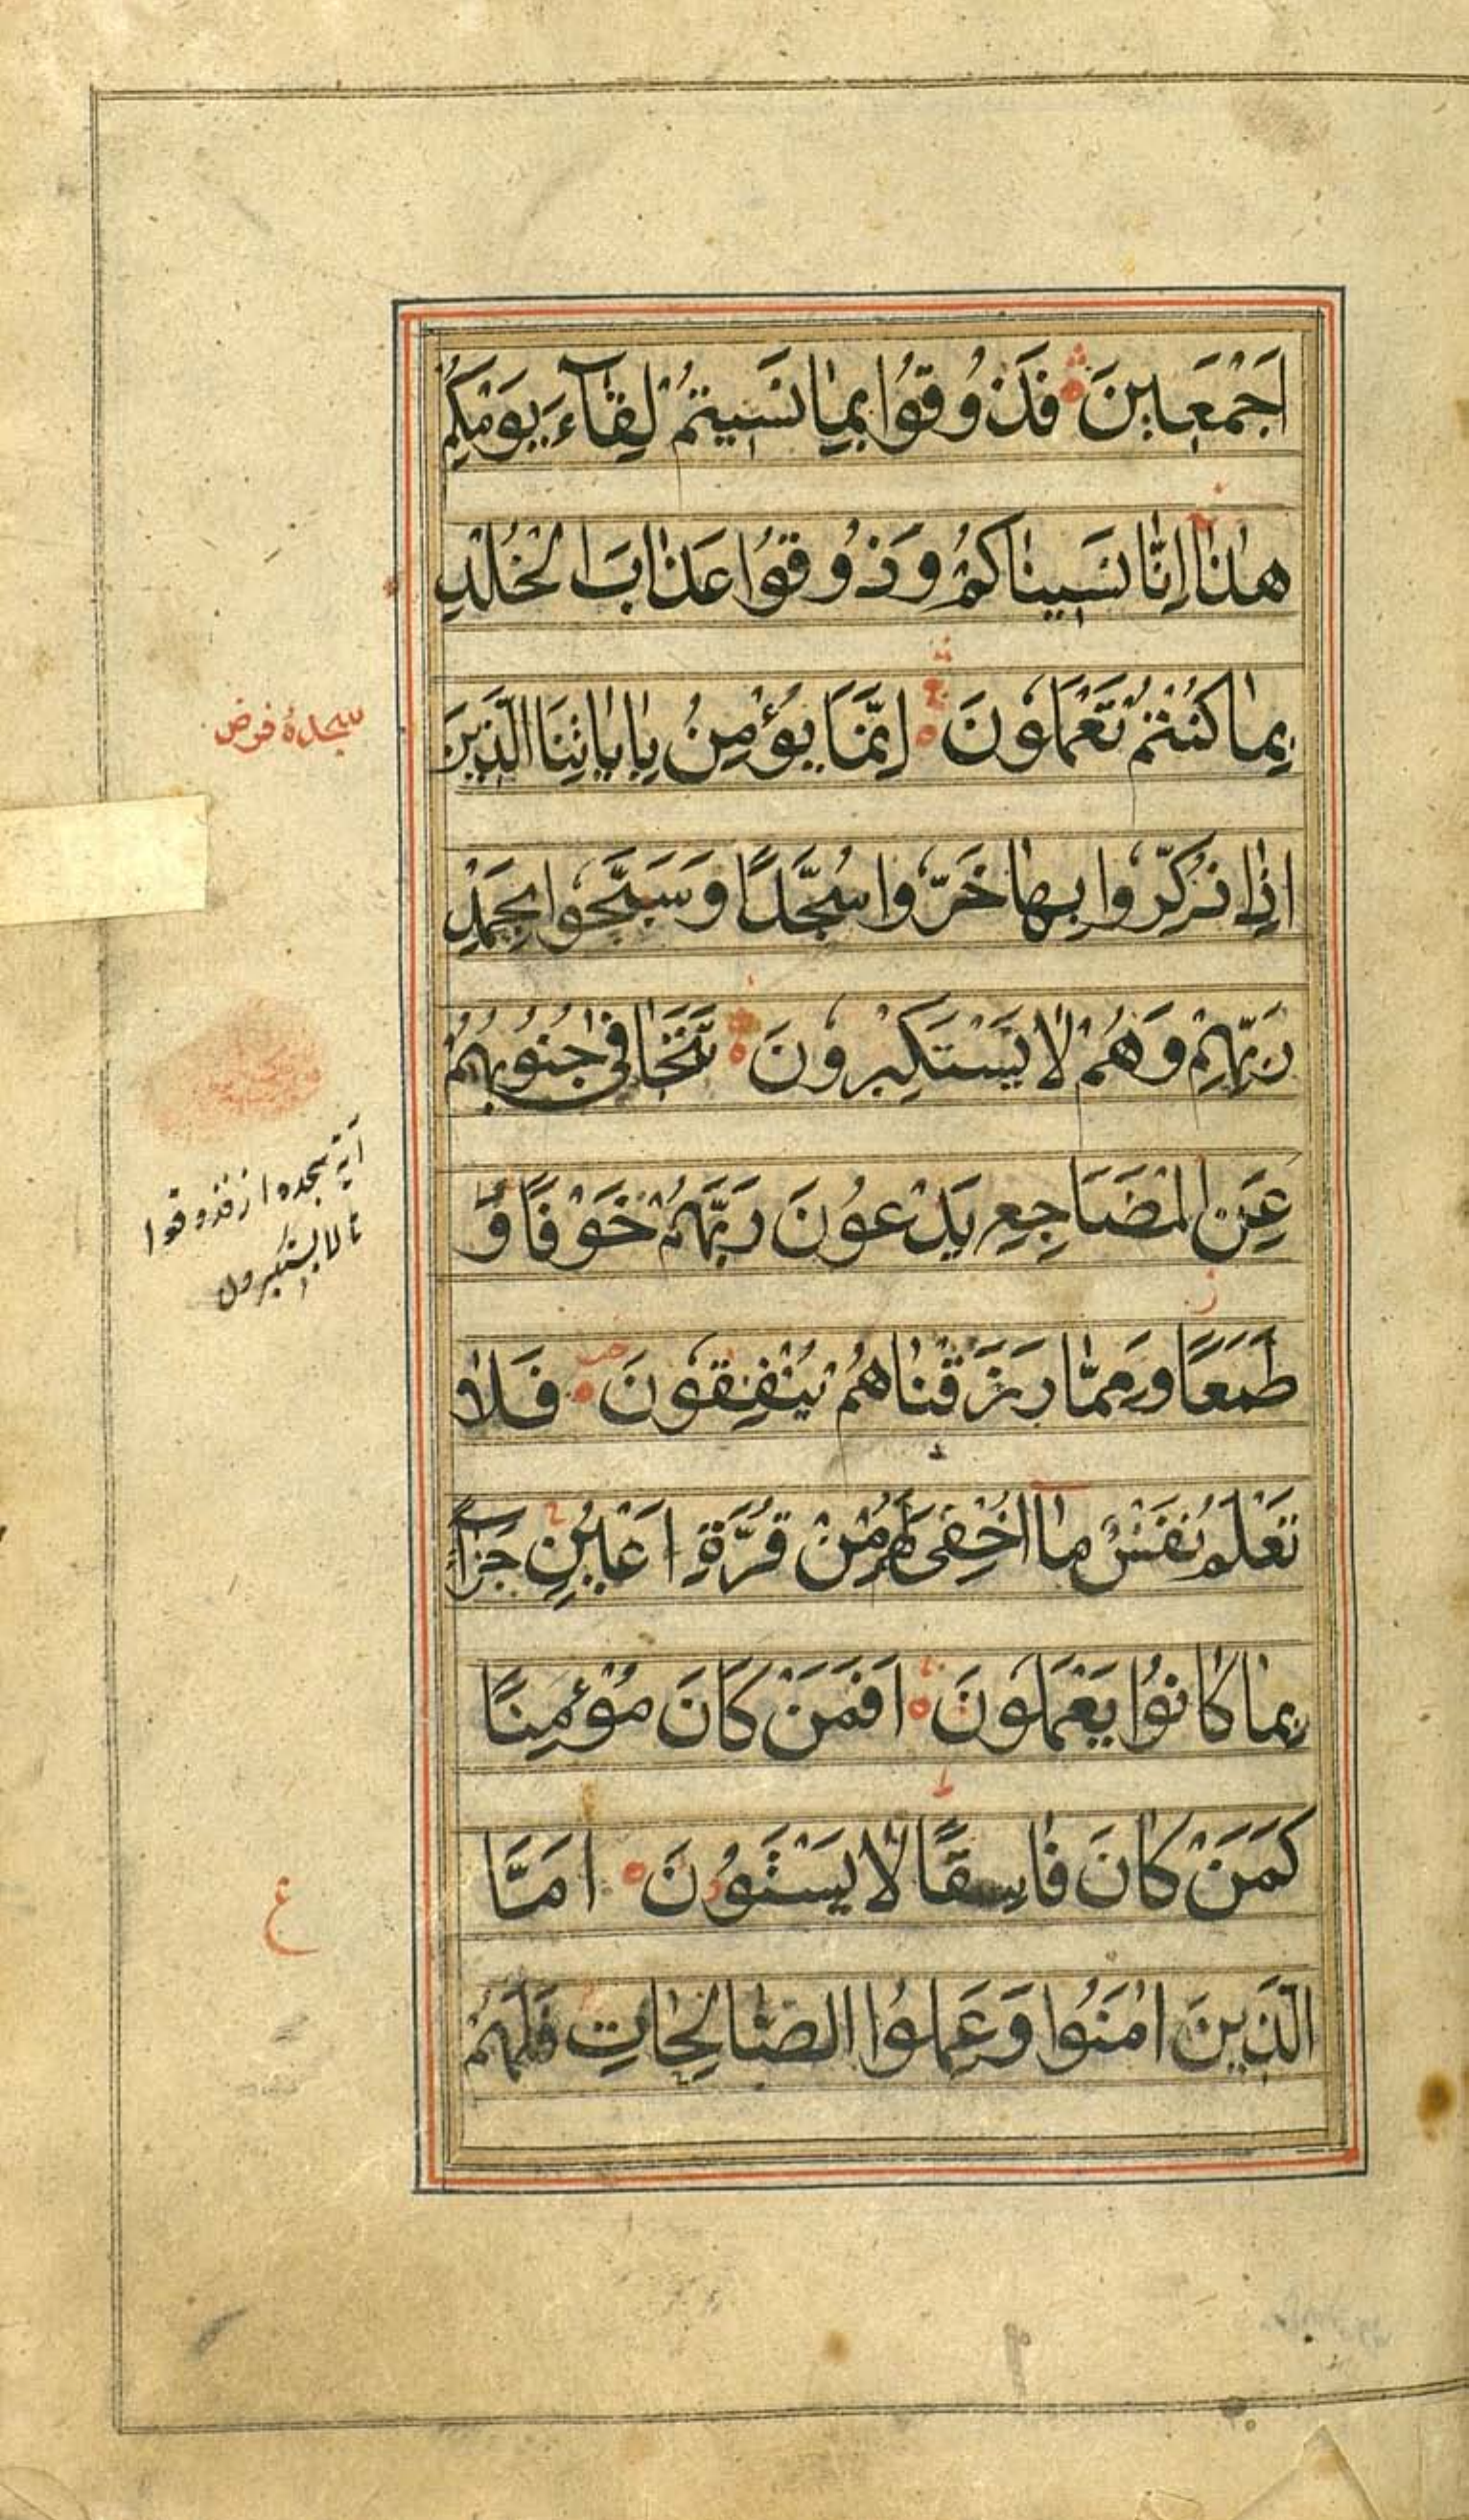 اَجْمَعٖينَ فَذُوقُوا بِمٰا نَسٖيتُمْ لِقٰٓاءَ يَوْمِكُمْ
هٰذٰا اِنّٰا نَسٖينٰاكُمْ وَذُوقُوا عَذٰابَ الْخُلْدِ
بِمٰا كُنْتُمْ تَعْمَلُونَ اِنَّمٰا يُؤْمِنُ بِاٰيٰاتِنَا الَّذٖينَ
اِذٰا ذُكِّرُوا بِهٰا خَرُّوا سُجَّدًا وَسَبَّحُوا بِحَمْدِ
رَبِّهِمْ وَهُمْ لٰا يَسْتَكْبِرُونَ تَتَجٰافىٰ جُنُوبُهُمْ
عَنِ الْمَضٰاجِعِ يَدْعُونَ رَبَّهُمْ خَوْفًا وَّ
طَمَعًا وَمِمّٰا رَزَقْنٰاهُمْ يُنْفِقُونَ فَلٰا
تَعْلَمُ نَفْسٌ مٰا اُخْفِىَ لَهُمْ مِنْ قُرَّةِ اَعْيُنٍ جَزٰٓاءً
بِمٰا كٰانُوا يَعْمَلُونَ اَفَمَنْ كٰانَ مُؤْمِنًا
كَمَنْ كٰانَ فٰاسِقًا لٰا يَسْتَوُونَ اَمَّا
الَّذٖينَ اٰمَنُوا وَعَمِلُوا الصّٰالِحٰاتِ فَلَهُمْ
سجدهٔ فرض
آیة سجده از فذوقوا
تا لا یستکبرون
ع